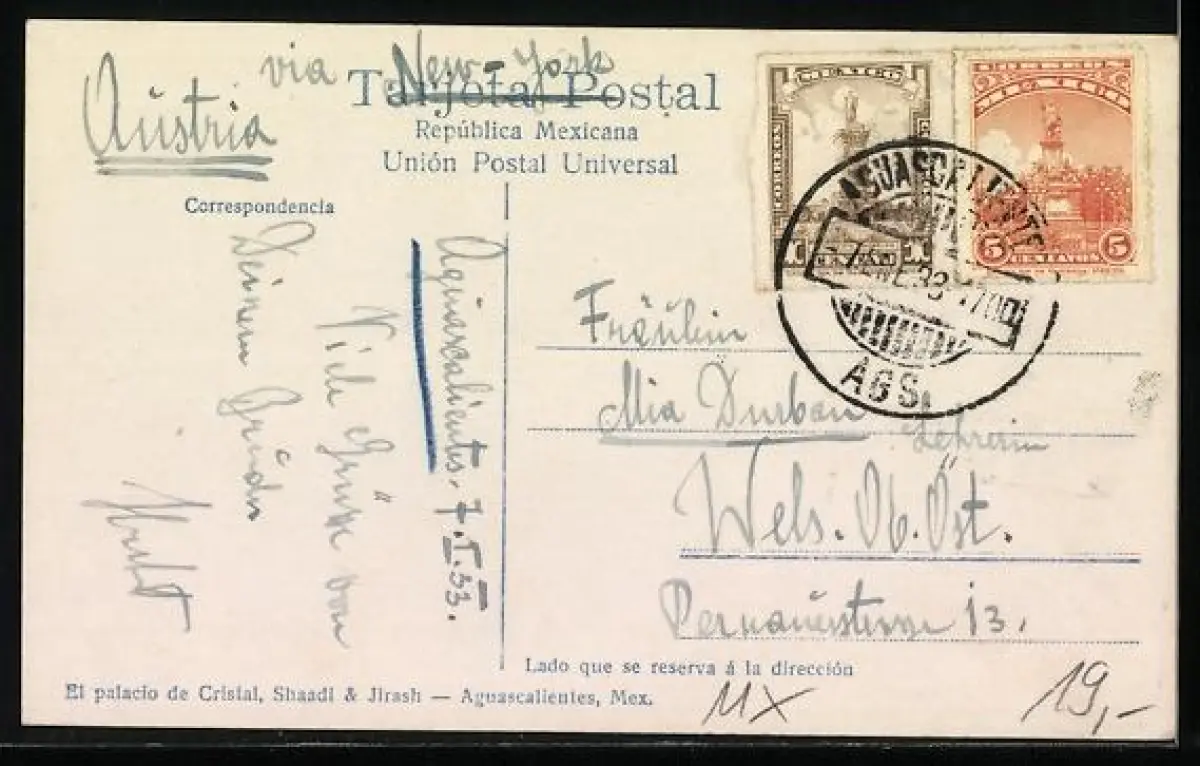 Austria via New-York
Tarjeta Postal
República Mexicana
Unión Postal Universal
Correspondencia
Aguascalientes, 7.I.33.
Viele Grüsse von
Deinem Bruder
CORREOS
1 CENTAVO 1
5 CENTAVOS 5
AGUASCALIENTES
7 ENE. 33 1700
AGS.
Fräulein
Mia Durban Lehrerin
Wels. Ob. Öst.
13.
Lado que se reserva á la dirección
El palacio de Cristal, Shaadi & Jirash — Aguascalientes, Mex.
MX
19,-